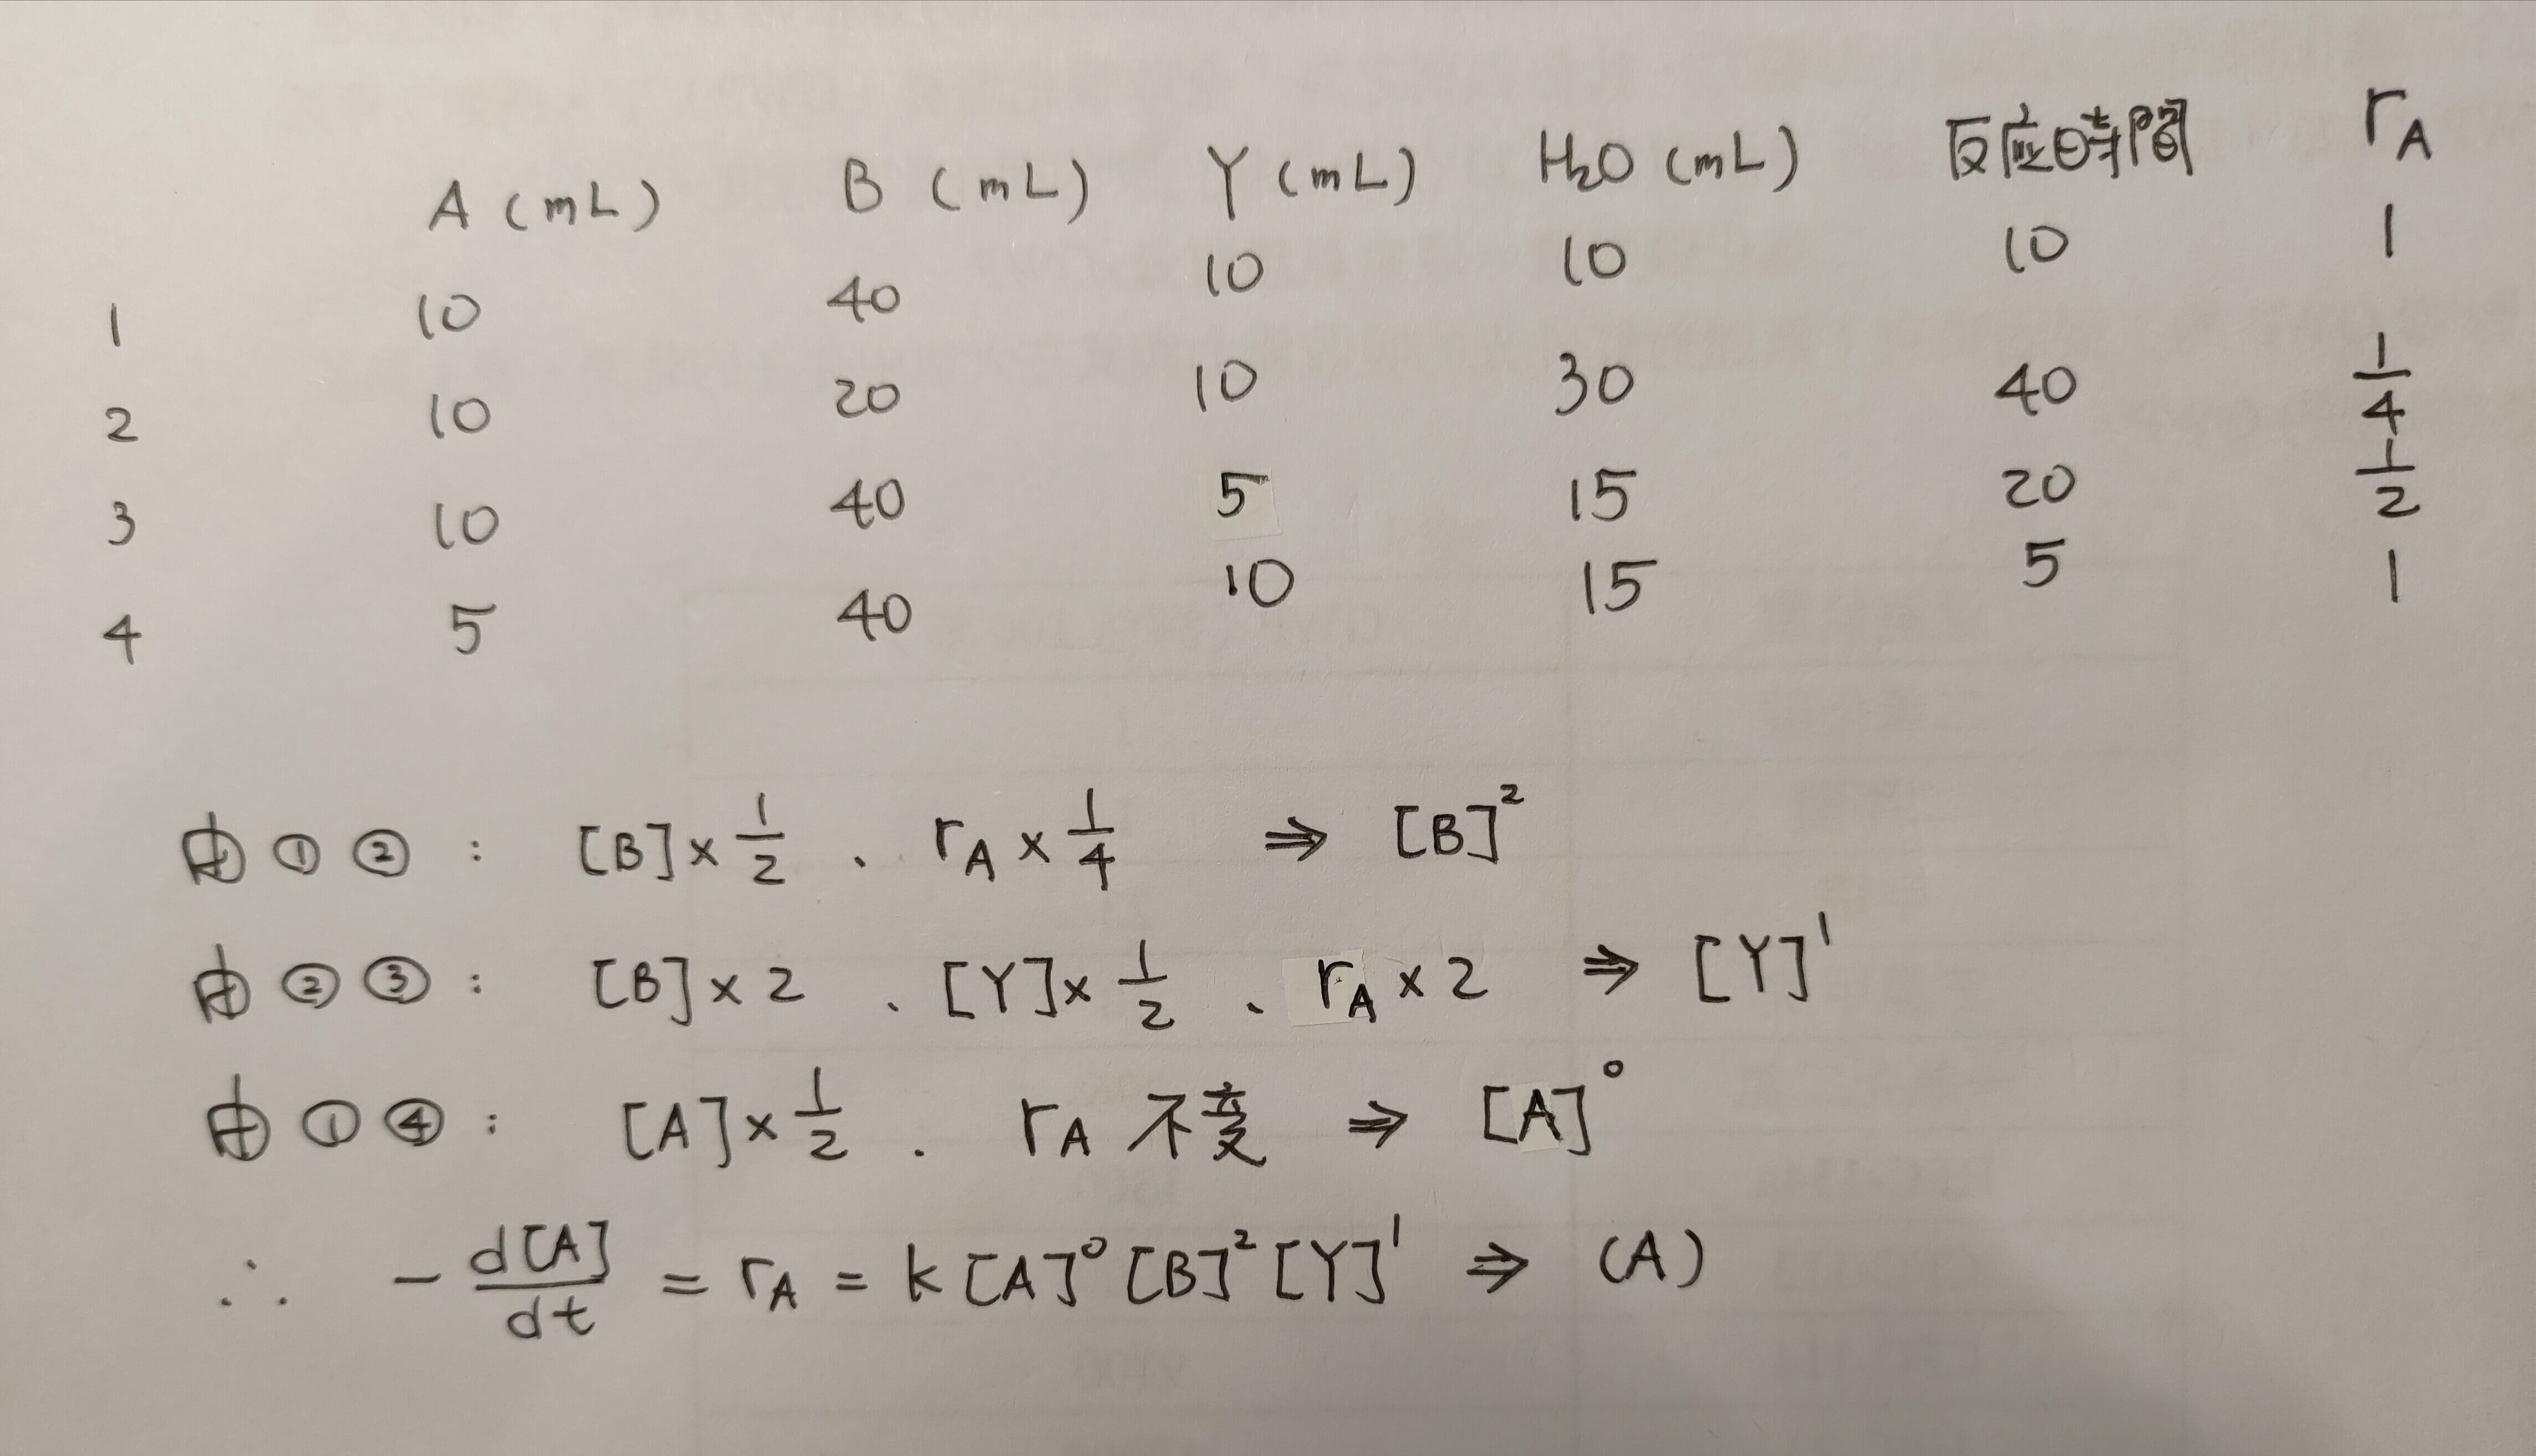 A (mL) B (mL) Y (mL) H₂O (mL) 反应時間 r_A
1 10 40 10 10 10 1
2 10 20 10 30 40 1/4
3 10 40 5 15 20 1/2
4 5 40 10 15 5 1
由①②： [B]×1/2 、 r_A×1/4 ⇒ [B]²
由②③： [B]×2 、 [Y]×1/2 、 r_A×2 ⇒ [Y]¹
由①④： [A]×1/2 . r_A 不变 ⇒ [A]⁰
∴ -d[A]/dt = r_A = k[A]⁰[B]²[Y]¹ ⇒ (A)